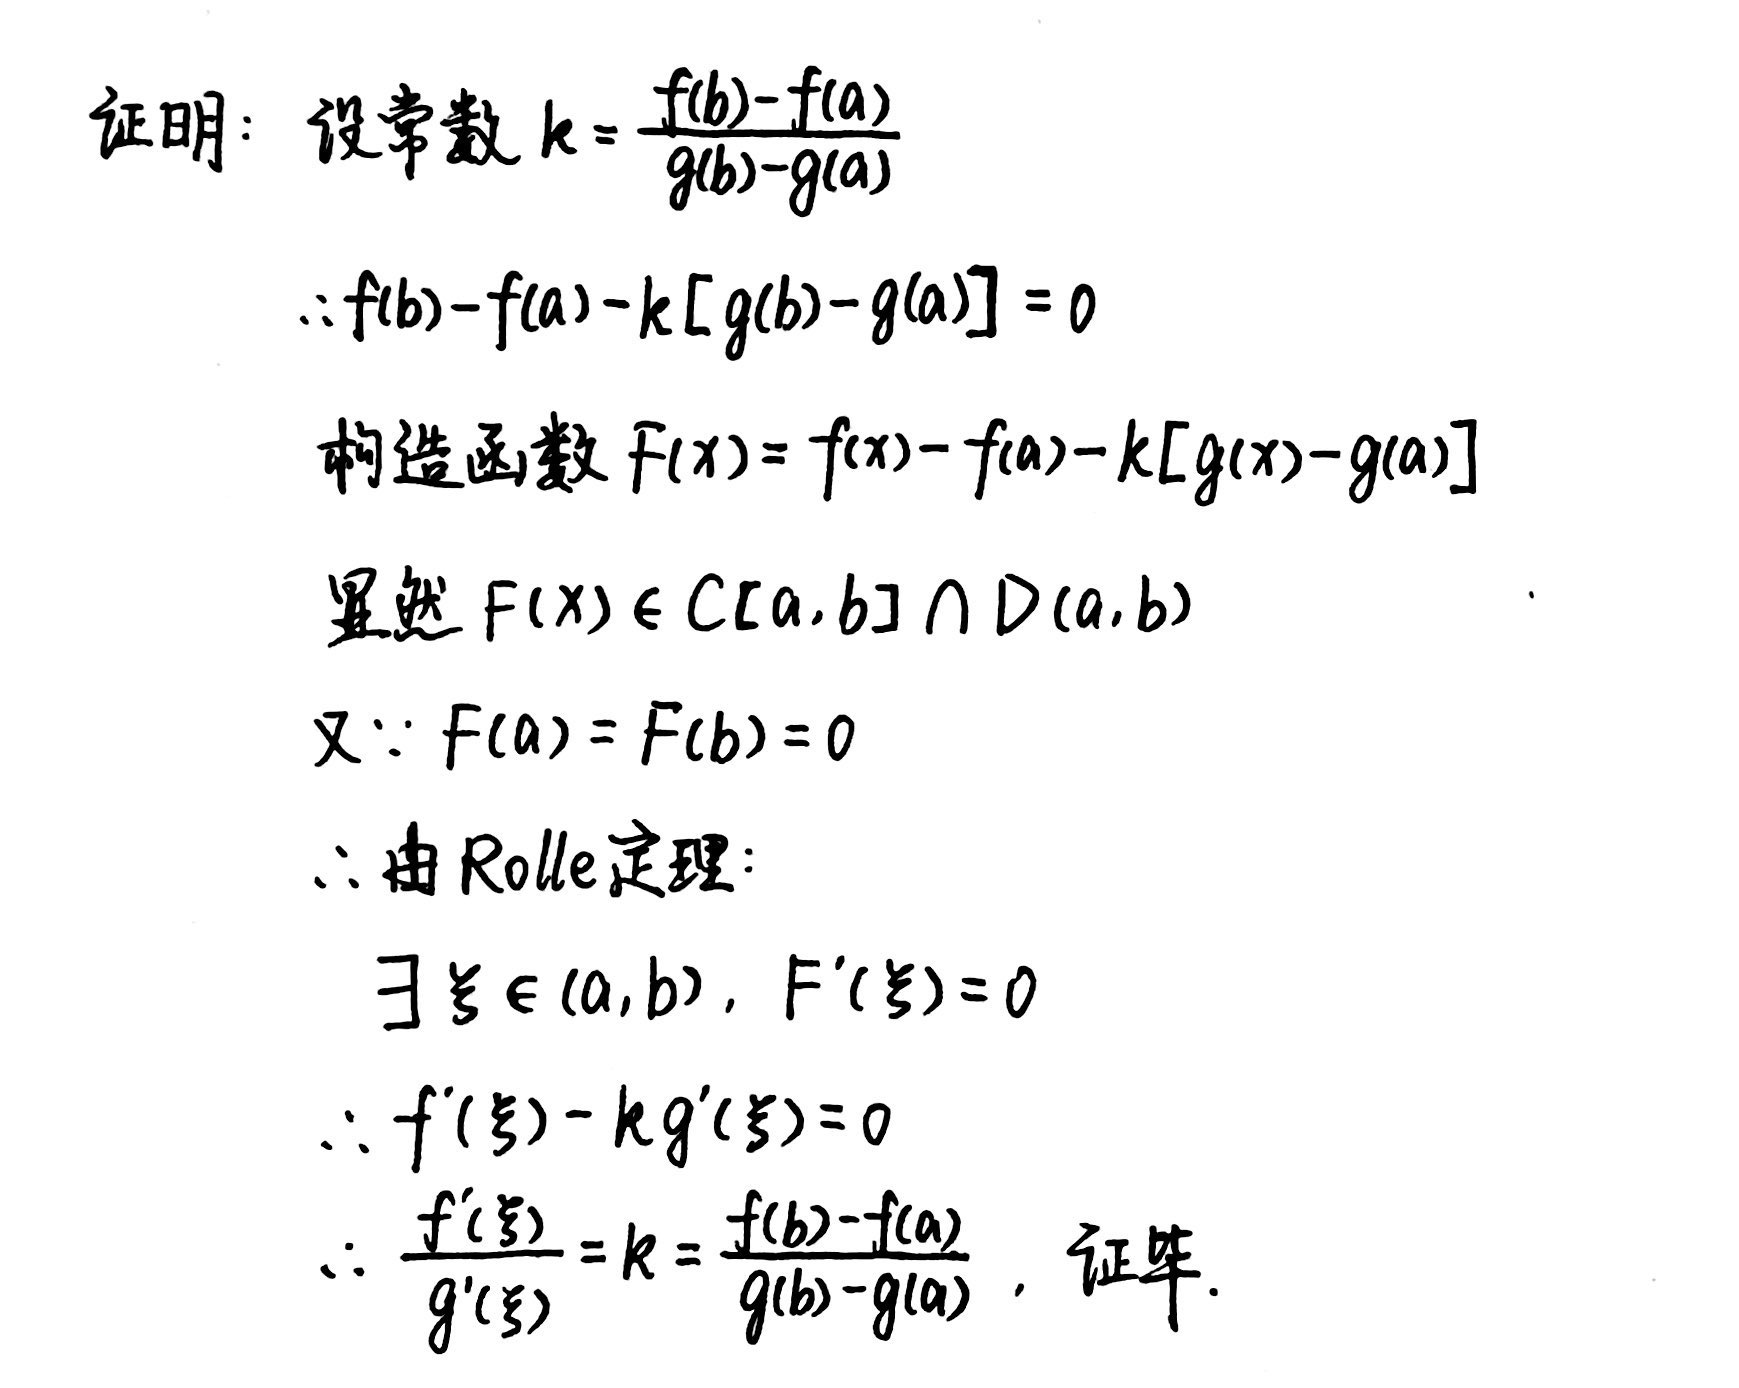 证明: 设常数 k = \frac{f(b)-f(a)}{g(b)-g(a)}
∴ f(b)-f(a)-k[g(b)-g(a)]=0
构造函数 F(x)=f(x)-f(a)-k[g(x)-g(a)]
显然 F(x)∈C[a,b]∩D(a,b)
又∵ F(a)=F(b)=0
∴ 由Rolle定理:
∃ξ∈(a,b), F′(ξ)=0
∴ f′(ξ)-kg′(ξ)=0
∴ \frac{f′(ξ)}{g′(ξ)}=k=\frac{f(b)-f(a)}{g(b)-g(a)}, 证毕.